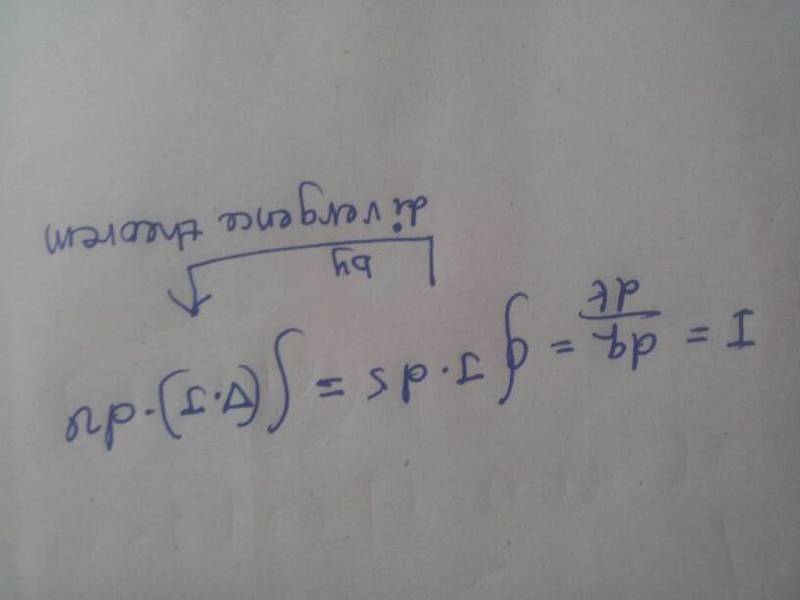 I = dq/dt = ∮ J · ds = ∫(∇·J)·dv
by
divergence theorem